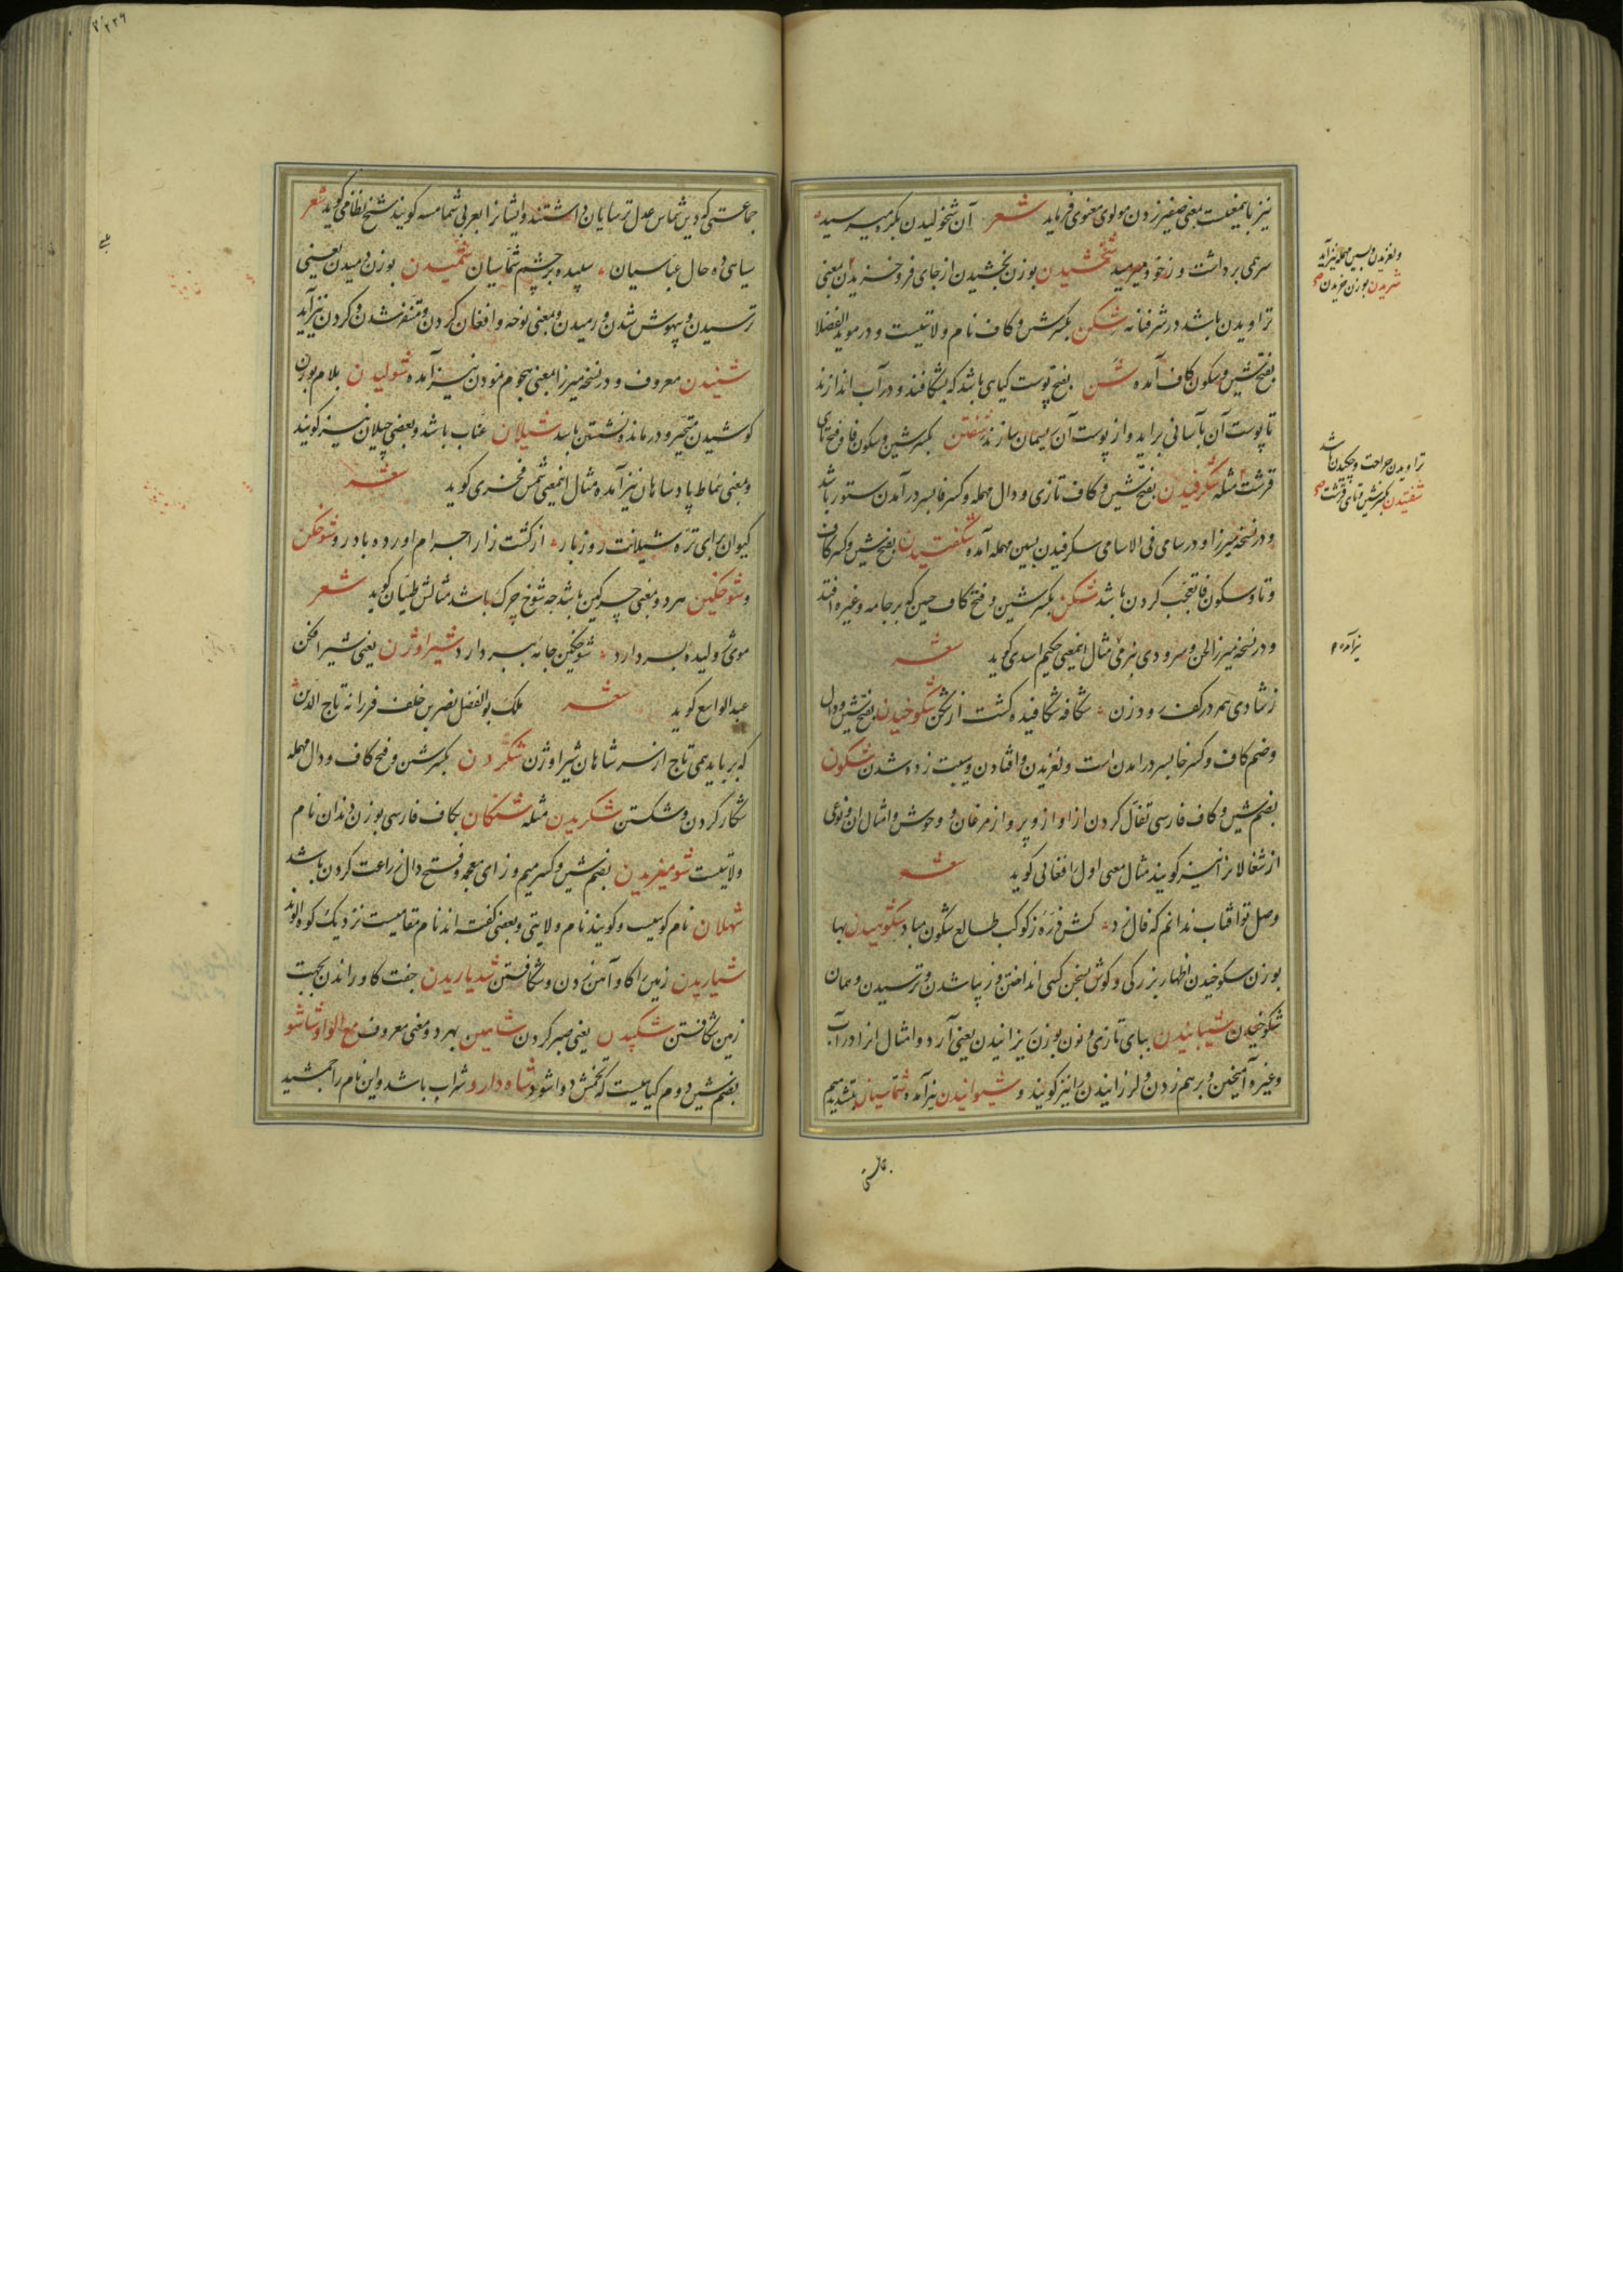 نیز باینمعنیست بمعنی صفیر زدن مولوی معنوی فرماید شعر آن شخولیدن بکره میرسید
سر همی برداشت و ز خود میرمید شخشیدن بوزن بخشیدن از جای فرو خزیدن بمعنی
تراویدن باشد در شرفنامه شکن بکسر شین و کاف نام ولایتیست و در موید الفضلا
بفتح شین و سکون کاف آمده شن بفتح پوست کیاهی باشد که بشکافند و در آب اندازند
تا پوست آن بآسانی براید و از پوست آن ریسمان سازند شفتن بکسر شین و سکون فا و فتح تای
قرشت مثله شکرفیدن بفتح شین و کاف تازی و دال مهمله و کسر فا بسر درآمدن ستور باشد
و در نسخه میرزا و در سامی فی الاسامی سکرفیدن بسین مهمله آمده شکفتیدن بفتح شین و کسر کاف
و تا و سکون فا تعجب کردن باشد شکن بکسر شین و فتح کاف چین که بر جامه و غیره افتد
و در نسخه میرزا لحن و سرودی بزمی مثال اینمعنی حکیم اسدی کوید شعر
ز شادی همه در کف رود زن شکافه شکافیده کشت از شکن شکوخیدن بفتح شین و دال
و ضم کاف و کسر خا بسر درامدن است و لغزیدن و افتادن و هیبت زده شدن شکون
بضم شین و کاف فارسی تفأل کردن از اواز و پرواز مرغان و وحوش و امثال ان و نوعی
از شغالانرا نیز کویند مثال معنی اول افغانی کوید شعر
وصل تو افتاب ندانم که فال زد کش ذره ز کوکب طالع شکون مباد شکوهیدن بها
بوزن سکوخیدن اظهار بزرکی و کوش بسخن کسی انداختن و زیبا شدن و ترسیدن و همان
شکوخیدن شیبانیدن ببای تازی و نون بوزن یزانیدن یعنی آرد و امثال انرا در آب
و غیره آمیختن و برهم زدن و لرزانیدن را نیز کویند و شیوانیدن نیز آمده شماسیان بتشدید میم
ولغزیدن و بسین مهمله نیز آید
شریدن بوزن خریدن
تراویدن جراحت و چکیدن باشد
شفتیدن بکسر شین و تای قرشت
نیز آمده
جماعتی که دین شماس عدل ترسایان داشتند و ایشانرا بعربی شمامسه کویند شیخ نظامی کوید شعر
سیاهی ده حال عباسیان سپیده بر چشم شماسیان شمیدن بوزن دمیدن یعنی
ترسیدن و بیهوش شدن و رمیدن و بمعنی نوحه و افغان کردن و متنفر شدن و کردن نیز آید
شنیدن معروف و در نسخه میرزا بمعنی هجوم نمودن نیز آمده شولیدن بلام بوزن
کوشیدن متحیر و درمانده نشستن باشد شیلان عناب باشد و بعضی چیلان نیز کویند
و بمعنی سماط پادشاهان نیز آمده مثال اینمعنی شمس فخری کوید شعر
کیوان برای تره شیلانت روز بار از کشت زار اجرام اورده بادرو شوخکن
و شوخکین هر دو بمعنی چرکین باشد چه شوخ چرک باشد مثالش طیان کوید شعر
موی ژولیده بسر دارد شوخکین جامه ببر دارد شیراوژن یعنی شیر افکن
عبدالواسع کوید شعر ملک بوالفضل نصر بن خلف فرزانه تاج الدین
که برباید همی تاج از سر شاهان شیراوژن شکردن بکسر شین و فتح کاف و دال مهمله
شکار کردن و شکستن شکریدن مثله شنکان بکاف فارسی بوزن دندان نام
ولایتیست شومیزیدن بضم شین و کسر میم و زای معجمه و فتح دال زراعت کردن باشد
شهلان نام کوهیست و کویند نام ولایتی و بعضی کفته اند نام مقامیست نزدیک کوه الوند
شیاریدن زمین را کاو آهن زدن و شکافتن شدیاریدن جفت کاو راندن بجهت
زمین شکافتن شکیبیدن یعنی صبر کردن شاهین بهر دو معنی معروف مع الواو شاشو
بضم شین دوم کیاهیست که تخمش دوا شود شاه دارو شراب باشد و این نام را جمشید